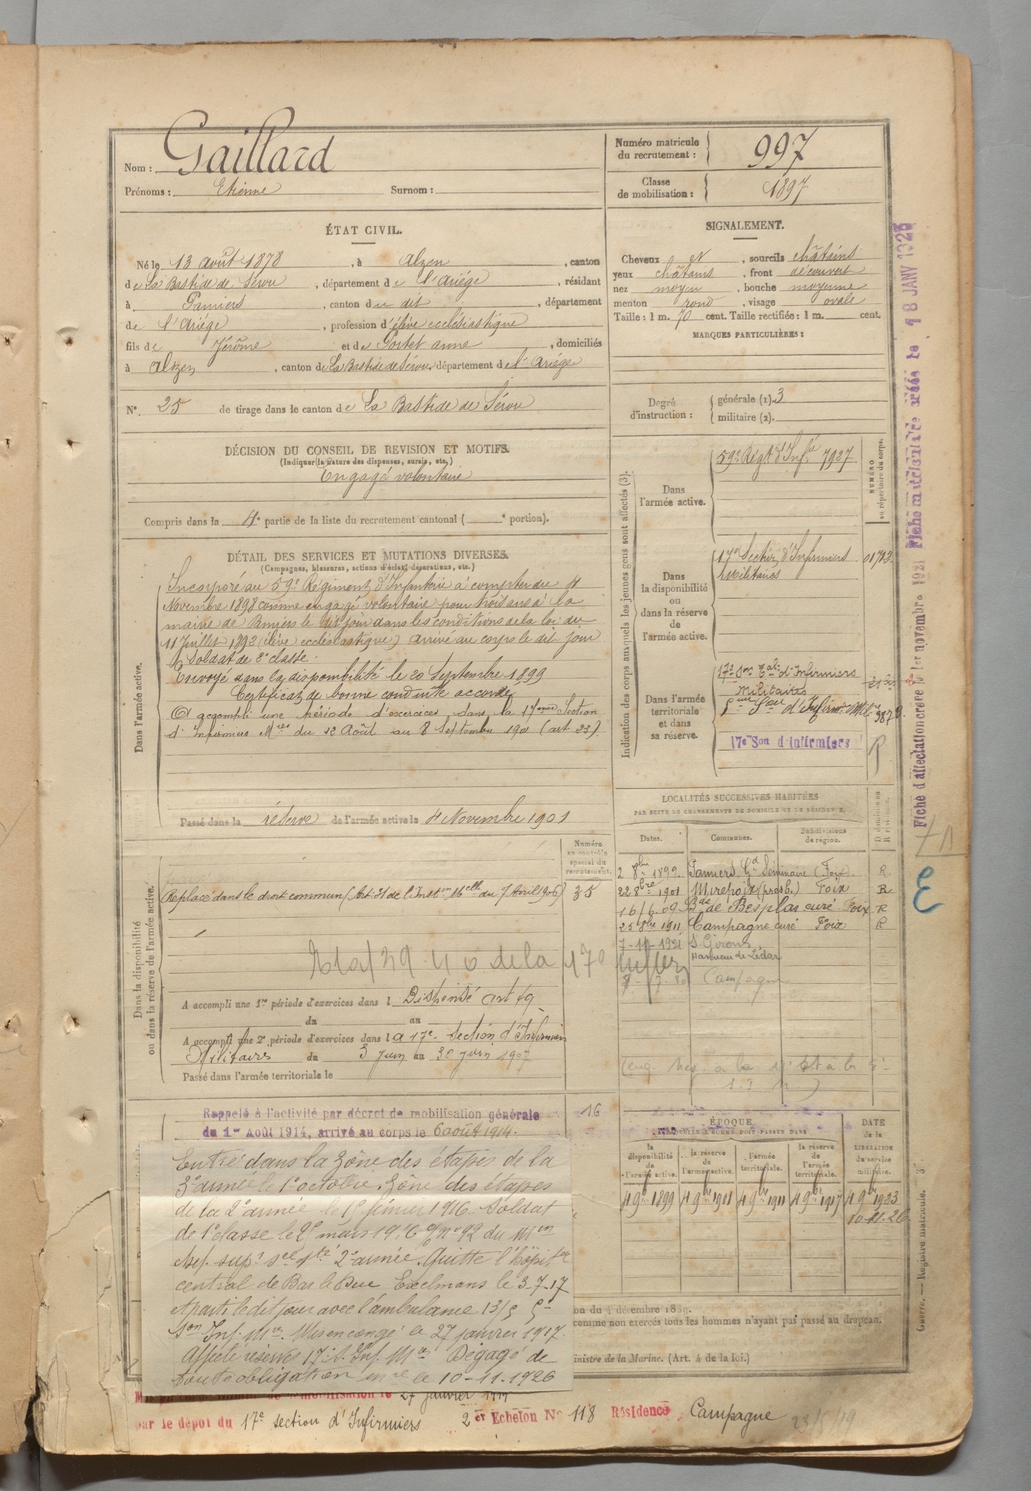 Nom : Gaillard
Prénoms : Etienne Surnom :
Numéro matricule du recrutement : 997
Classe de mobilisation : 1897
ÉTAT CIVIL.
Né le 13 août 1878, à Alzen, canton
de La Bastide de Sérou, département de l'Ariége, résidant
à Pamiers, canton de dit, département
de l'Ariége, profession d'élève ecclésiastique
fils de Jérôme et de anne, domiciliés
à Alzen, canton de La Bastide de Sérou, département de l'Ariége
N° 25 de tirage dans le canton de La Bastide de Sérou
SIGNALEMENT.
Cheveux et, sourcils châtains
yeux châtains, front découvert
nez moyen, bouche moyenne
menton rond, visage ovale
Taille : 1 m. 70 cent. Taille rectifiée : 1 m. cent.
MARQUES PARTICULIÈRES :
Degré d'instruction : générale (1). 3
militaire (2).
DÉCISION DU CONSEIL DE REVISION ET MOTIFS.
(Indiquer la nature des dispenses, sursis, etc.)
Engagé volontaire
Compris dans la 4e partie de la liste du recrutement cantonal ( e portion).
DÉTAIL DES SERVICES ET MUTATIONS DIVERSES.
(Campagnes, blessures, actions d'éclat, décorations, etc.)
Dans l'armée active.
Incorporé au 59e Régiment d'Infanterie à compter du 4
Novembre 1898 comme engagé volontaire pour trois ans à la
mairie de Pamiers le dit jour dans les conditions de la loi du
11 Juillet 1892 (élève ecclésiastique) arrivé au corps le dit jour
Soldat de 2e classe.
Envoyé dans la disponibilité le 20 Septembre 1899
Certificat de bonne conduite accordé
A accompli une période d'exercices dans la 17ème Section
d'Infirmiers Mres du 12 Août au 8 Septembre 1901 (art 23)
Passé dans la réserve de l'armée active le 4 Novembre 1901
Indication des corps auxquels les jeunes gens sont affectés (3).
NUMÉRO au répertoire du corps.
Dans l'armée active. 59e Régt d'Infie 7907
Dans la disponibilité ou dans la réserve de l'armée active. 17e Section d'Infirmiers Militaires
Dans l'armée territoriale et dans sa réserve. d'Infirmiers militaires
17e Son d'infirmiers
R
LOCALITÉS SUCCESSIVES HABITÉES
PAR SUITE DE CHANGEMENTS DE DOMICILE OU DE RÉSIDENCE.
Dates. Communes. Subdivisions de région.
2 8bre 1899 Pamiers Gd Séminaire (Foix) R
22 8bre 1901 Mirepoix Foix R
16/6 09 Bde de Besplas curé Foix R
25 8bre 1911 Campagne curé Foix R
7-11-1921 St Girons
Hameau de Lédar
Campagne
Dans la disponibilité ou dans la réserve de l'armée active.
Numéro au contrôle spécial du recrutement.
Replacé dans le droit commun (Art. 31 de l'Instron Melle du 7 Avril 1906) 35
A accompli une 1re période d'exercices dans l Dispensé art 49
du au
A accompli une 2e période d'exercices dans l a 17e Section d'Infirmiers
Militaires du 3 juin au 30 juin 1907
Passé dans l'armée territoriale le
Rappelé à l'activité par décret de mobilisation générale 16
du 1er Août 1914, arrivé au corps le 6 août 1914.
Entré dans la zône des étapes de la
3e année le 1e octobre. Zône des étapes
de la 2e année le 15 février 1916. Soldat
de 1e classe le 25 mars 1916 No 92 du Mcin
chef. 2e année. Quitte l'hôpital
central de Bar le Duc Exelmans le 3-7-17
et part le dit jour avec l'ambulance 13/5
Son Inf. Mres. Mis en congé le 27 janvier 1917.
Affecté réserve 17e Son Inf. Mres Dégagé de
toute obligation mre le 10-11-1926
ÉPOQUE
la disponibilité de l'armée active. la réserve de l'armée active. l'armée territoriale. la réserve de l'armée territoriale.
DATE de la LIBÉRATION du service militaire.
1 9bre 1899 1 9bre 1901 1 9bre 1911 1 9bre 1917 1 9bre 1923
10-11-26
comme non exercés tous les hommes n'ayant pas passé au drapeau.
ministre de la Marine. (Art. 4 de la loi.)
mobilisation le 27 janvier 1919
par le dépot du 17e section d'Infirmiers 2er Echelon No 118 Résidence Campagne 23/5/19
Fiche d'affectation créée le 1er novembre 1921 Fiche matriculaire créée le 18 JANV 1923
Guerre. — Registre matricule.